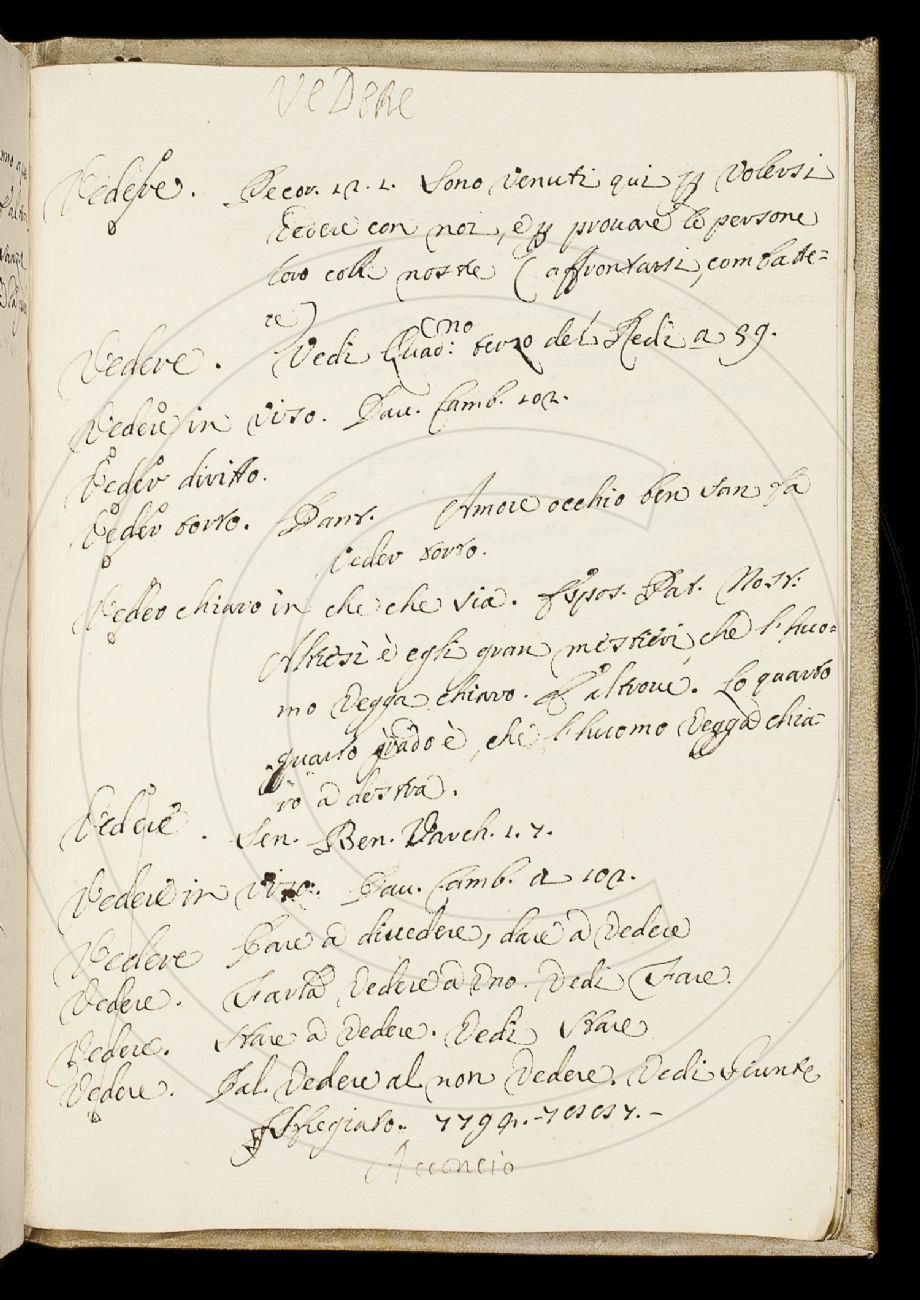 VeDere
Vedere. Pecor. 12. 1. Sono venuti qui p volersi
vedere con noi, e p provare le persone
loro colle nostre (affrontarsi, combatte=
re)
Vedere. Vedi Quad:no terzo del Redi a 59.
Vedere in viso. Dav. Camb. 102.
Veder diritto.
Veder torto. Dant. Amore occhio ben san fa
veder torto.
Veder chiaro in che che sia. Espos. Pat. Nost:
Altresì è egli gran mestieri, che l'huo=
mo vegga chiaro. E altrove. Lo quarto
quarto grado è, che l'huomo vegga chia=
ro a destra.
Vedere. Sen. Ben. Varch. 1. 7.
Vedere in viso. Dav. Camb. a 102.
Vedere Fare a divedere, dare a vedere
Vedere. Farla vedere a uno. Vedi Fare.
Vedere. Stare a vedere. Vedi Stare
Vedere. Dal vedere al non vedere. Vedi Giunte
Sfregiato.
Acconcio